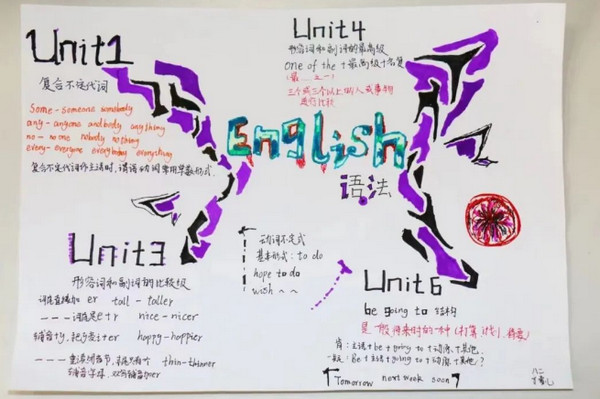 Unit1
复合不定代词
some-someone somebody
any-anyone anybody anything
no-no one nobody nothing
every-everyone everybody everything
复合不定代词作主语时,谓语动词常用单数形式.
Unit4
形容词和副词的最高级
one of the + 最高级+名复
(最……之一)
三个或三个以上的人或事物
进行比较
English
语法
Unit3
形容词和副词的比较级
词尾直接加 er tall-taller
词尾e+r nice-nicer
辅音+y,把y变i+er happy-happier
thin-thinner
动词不定式
基本形式: to do
hope to do
wish ~ ~
Unit6
be going to 结构
是一般将来时的一种(打算,计划,将要)
肯:主语+be+going to+动原+其他.
一般:Be+主语+going to+动原+其他?
Tomorrow next week soon
八二